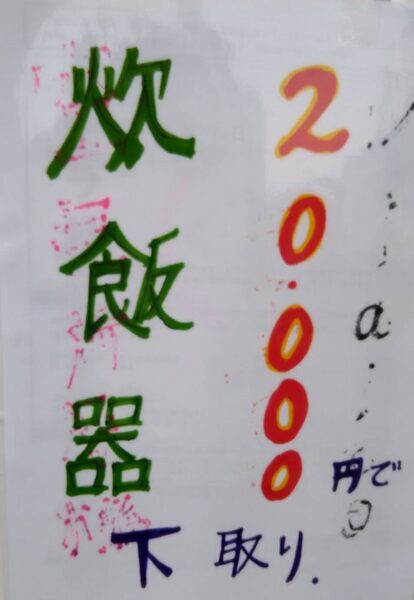 炊飯器
20.000
円で
下取り.